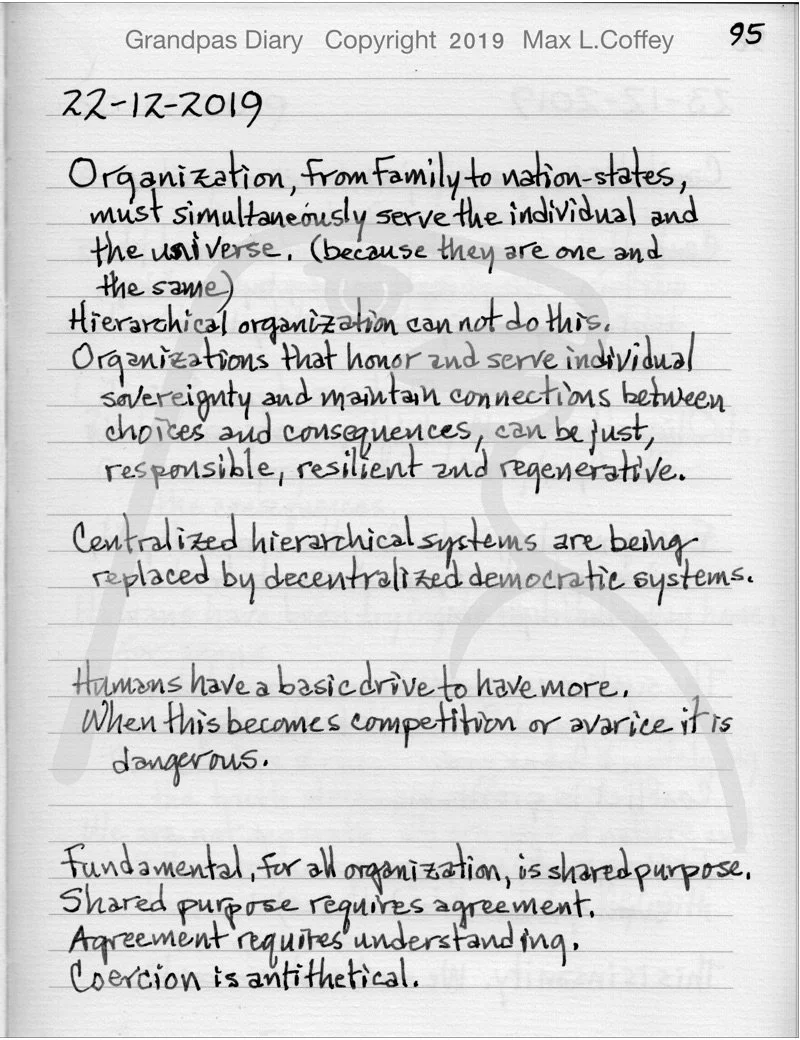 Grandpas Diary Copyright 2019 Max L.Coffey
95
22-12-2019
Organization, from family to nation-states,
must simultaneously serve the individual and
the universe. (because they are one and
the same)
Hierarchical organization can not do this.
Organizations that honor and serve individual
sovereignty and maintain connections between
choices and consequences, can be just,
responsible, resilient and regenerative.
Centralized hierarchical systems are being
replaced by decentralized democratic systems.
Humans have a basic drive to have more.
When this becomes competition or avarice it is
dangerous.
Fundamental, for all organization, is shared purpose.
Shared purpose requires agreement.
Agreement requires understanding.
Coercion is antithetical.